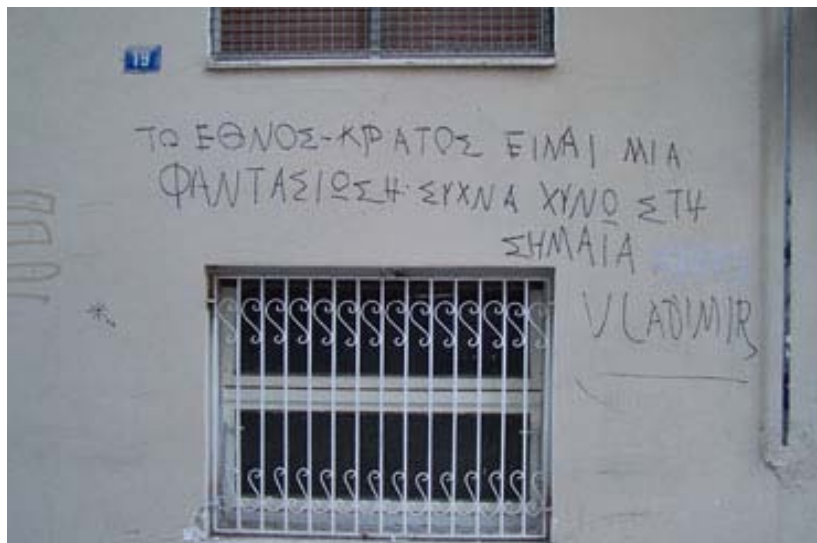 19
ΤΟ ΕΘΝΟΣ-ΚΡΑΤΟΣ ΕΙΝΑΙ ΜΙΑ
ΦΑΝΤΑΣΙΩΣΗ· ΣΥΧΝΑ ΧΥΝΩ ΣΤΗ
ΣΗΜΑΙΑ
VLADIMIR